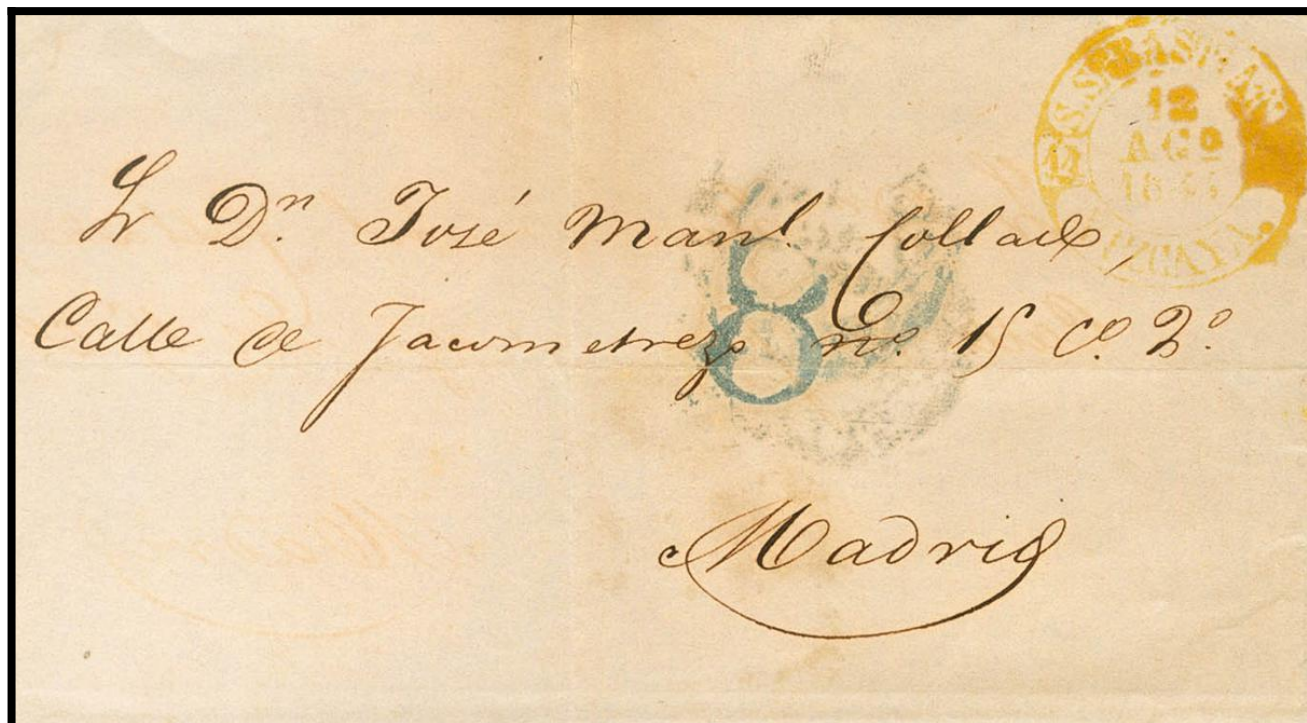 S. SEBASTIAN
12
AGO
14
VIZCAYA.
Sr Dn. José Manl. Collado,
8
Calle de Jacometrezo no. 15 co. 2o.
Madrid